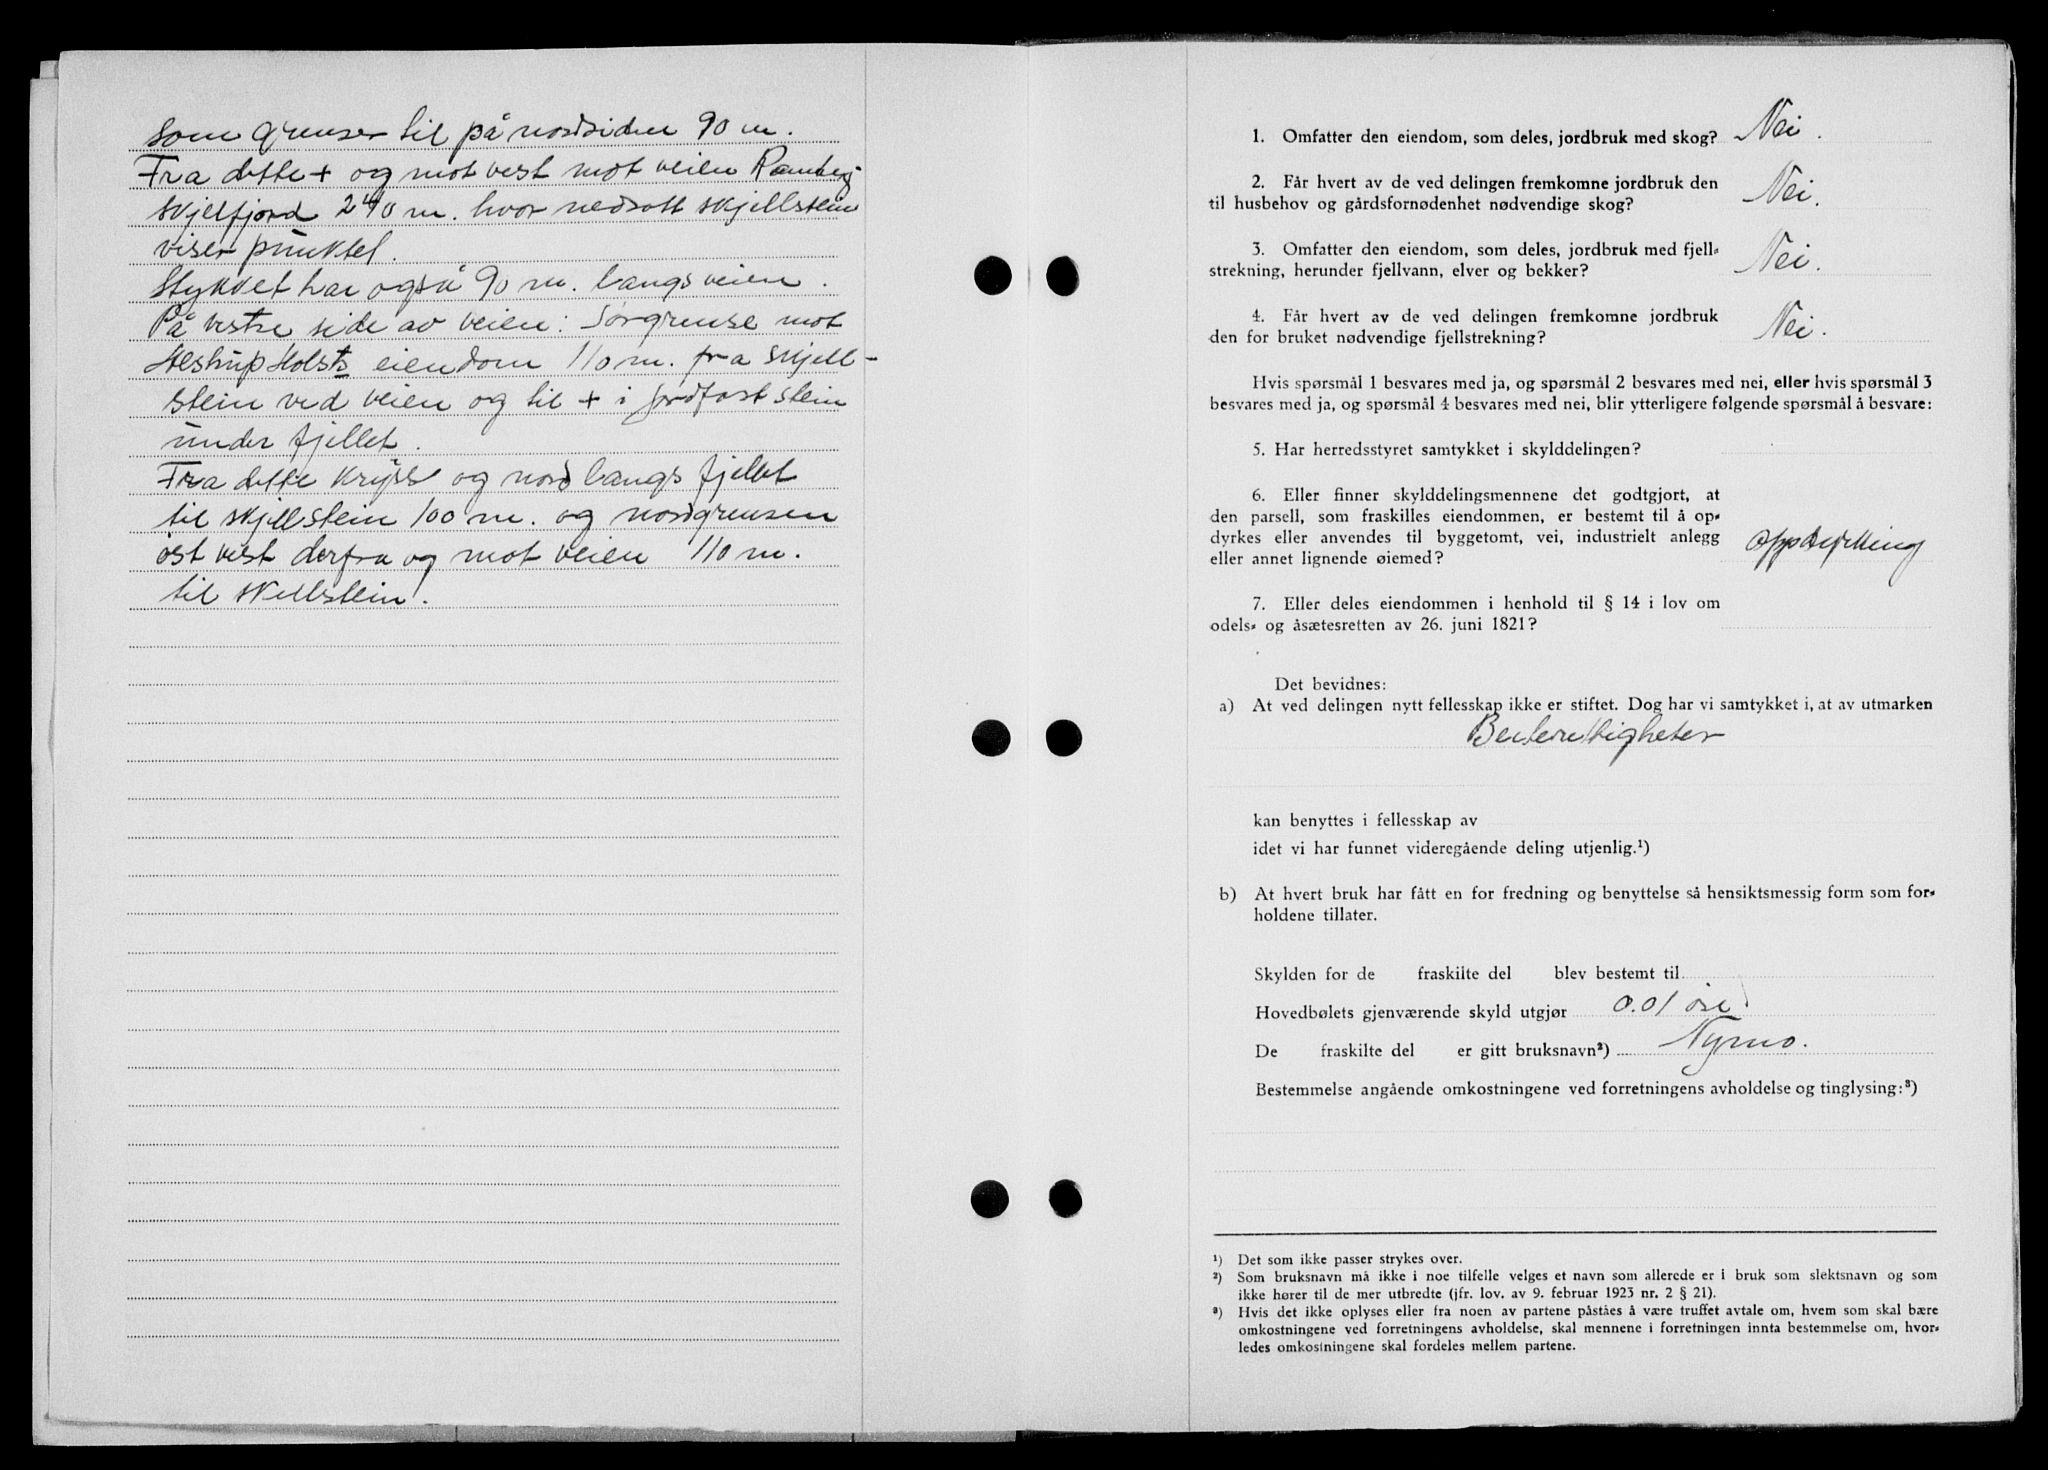 som grenser til på nordsiden 90 m.
Fra dette + og mot vest mot veien Ramberg-
skjelfjord 240 m. hvor nedsatt skjellstein
viser punktet.
Stykket har også 90 m. langs veien.
På vestre side av veien: Sørgrense mot
Holsts eiendom 110 m. fra skjell-
stein ved veien og til + i jordfast stein
under fjellet.
Fra dette kryss og nord langs fjellet
til skjellstein 100 m. og nordgrensen
øst vest derfra og mot veien 110 m.
til skellstein.
1. Omfatter den eiendom, som deles, jordbruk med skog? Nei.
2. Får hvert av de ved delingen fremkomne jordbruk den
til husbehov og gårdsfornødenhet nødvendige skog? Nei.
3. Omfatter den eiendom, som deles, jordbruk med fjell-
strekning, herunder fjellvann, elver og bekker? Nei.
4. Får hvert av de ved delingen fremkomne jordbruk
den for bruket nødvendige fjellstrekning? Nei.
Hvis spørsmål 1 besvares med ja, og spørsmål 2 besvares med nei, eller hvis spørsmål 3
besvares med ja, og spørsmål 4 besvares med nei, blir ytterligere følgende spørsmål å besvare:
5. Har herredsstyret samtykket i skylddelingen?
6. Eller finner skylddelingsmennene det godtgjort, at
den parsell, som fraskilles eiendommen, er bestemt til å op-
dyrkes eller anvendes til byggetomt, vei, industrielt anlegg
eller annet lignende øiemed? Oppdyrkning
7. Eller deles eiendommen i henhold til § 14 i lov om
odels- og åsætesretten av 26. juni 1821?
Det bevidnes:
a) At ved delingen nytt fellesskap ikke er stiftet. Dog har vi samtykket i, at av utmarken
Beiterettigheter
kan benyttes i fellesskap av
idet vi har funnet videregående deling utjenlig.¹)
b) At hvert bruk har fått en for fredning og benyttelse så hensiktsmessig form som for-
holdene tillater.
Skylden for de fraskilte del blev bestemt til
Hovedbølets gjenværende skyld utgjør 0.01 øre
De fraskilte del er gitt bruksnavn²) Nymo.
Bestemmelse angående omkostningene ved forretningens avholdelse og tinglysing:³)
¹) Det som ikke passer strykes over.
²) Som bruksnavn må ikke i noe tilfelle velges et navn som allerede er i bruk som slektsnavn og som
ikke hører til de mer utbredte (jfr. lov. av 9. februar 1923 nr. 2 § 21).
³) Hvis det ikke oplyses eller fra noen av partene påståes å være truffet avtale om, hvem som skal bære
omkostningene ved forretningens avholdelse, skal mennene i forretningen innta bestemmelse om, hvor-
ledes omkostningene skal fordeles mellem partene.